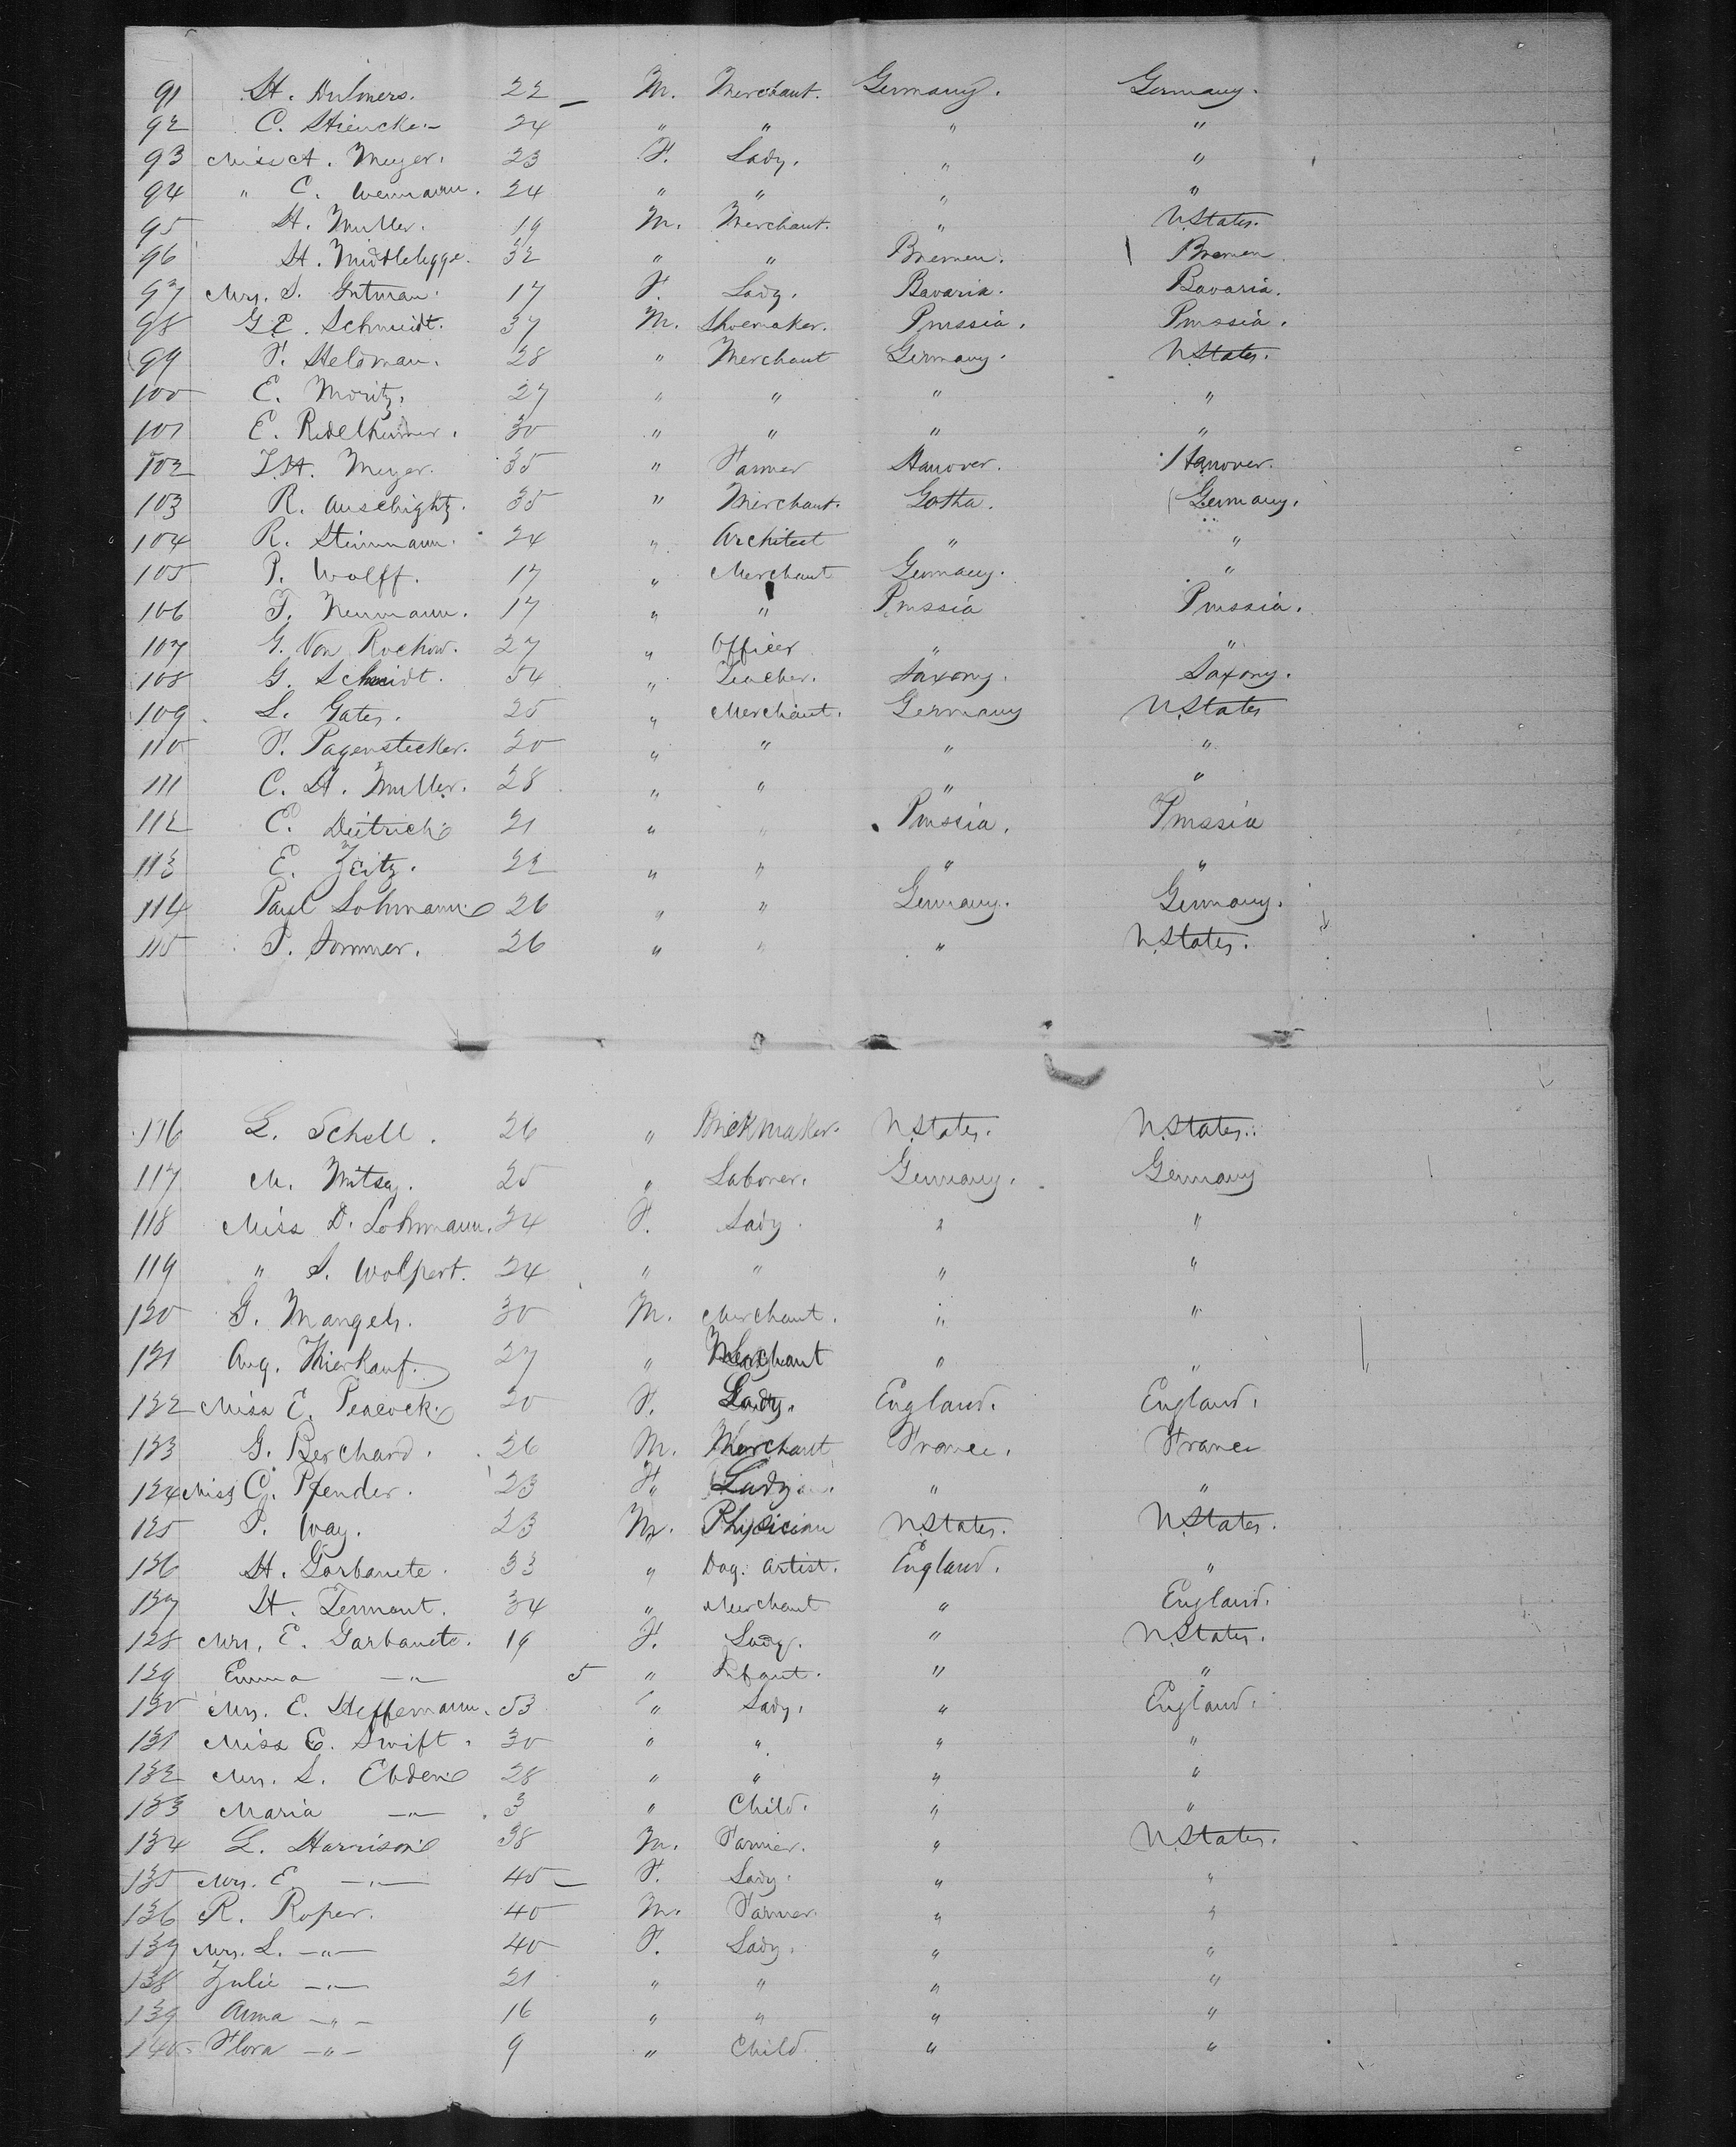 91 H. 22 — M. Merchant. Germany. Germany.
92 C. Stiencke. 24 " " " "
93 Miss A. Meyer. 23 F. Lady. " "
94 " C. Wenmann. 24 " " " "
95 H. Muller. 19 M. Merchant. " U.States.
96 H. Middlelegge. 32 " " Bremen. Bremen.
97 Mrs. S. Gutman. 17 F. Lady. Bavaria. Bavaria.
98 G.E. Schmidt. 37 M. Shoemaker. Prussia. Prussia.
99 F. Heldman. 28 " Merchant Germany. U.States.
100 E. Moritz. 27 " " " "
101 E. 30 " " " "
102 J.H. Meyer. 35 " Farmer Hanover. Hanover.
103 R. 35 " Merchant. Gotha. Germany.
104 R. Steinmann. 24 " Architect " "
105 P. Wolff. 17 " Merchant Germany. "
106 F. Neumann. 17 " " Prussia Prussia.
107 G. Von Rochow. 27 " Officer " "
108 G. Schmidt. 54 " Teacher. Saxony. Saxony.
109 L. Gates. 25 " Merchant. Germany U.States
110 F. Pagenstecker. 20 " " " "
111 C. H. Muller. 28 " " " "
112 C. Dietrich 21 " " Prussia. Prussia
113 E. Zeitz. 22 " " " "
114 Paul Lohmann 26 " " Germany. Germany.
115 P. Sommer. 26 " " " U.States.
116 L. Schell. 26 " Brickmaker. U.States. U.States.
117 M. 25 " Laborer. Germany. Germany
118 Miss D. Lohmann. 24 F. Lady. " "
119 " S. Wolpert. 24 " " " "
120 G. Mangels. 30 M. Merchant. " "
121 Aug. Thierkauf. 27 " Merchant " "
122 Miss E. Peacock 20 F. Lady. England. England.
123 G. Berchard. 26 M. Merchant France. France
124 Miss C. Pfender. 23 F. Lady " "
125 P. Way. 23 M. Physician U.States. U.States.
126 H. Garbanete. 33 " Dag. Artist. England. "
127 H. Tennant. 34 " Merchant " England.
128 Mrs. E. Garbanete. 19 F. Lady. " U.States.
129 Emma —"— 5 " Infant. " "
130 Mrs. E. Steffemann. 53 " Lady. " England.
131 Miss E. Swift. 30 " " " "
132 Mrs. S. Ebden 28 " " " "
133 Maria —"— 3 " Child. " "
134 G. Harrison 38 M. Farmer. " U.States.
135 Mrs. E. —"— 40 — F. Lady. " "
136 R. Roper. 40 M. Farmer. " "
137 Mrs. L. —"— 40 F. Lady. " "
138 Julie —"— 21 " " " "
139 Anna —"— 16 " " " "
140 Flora —"— 9 " Child " "